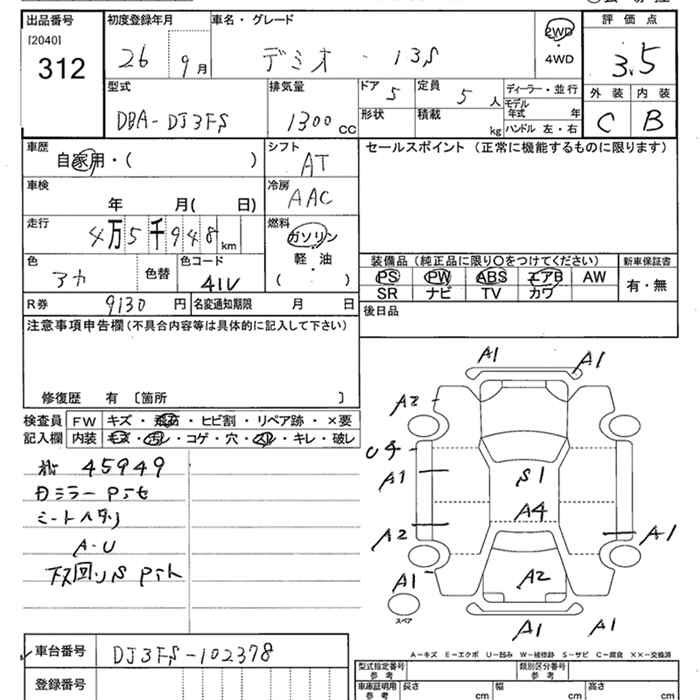 出品番号 初度登録年月 車名・グレード 2WD 評価点
[2040] 26 9月 デミオ・13S 4WD 3.5
312
型式 排気量 ドア 5 定員 5人 ディーラー・並行 外装 内装
DBA-DJ3FS 1300cc 形状 積載 kg モデル年式 年 C B
ハンドル 左・右
車歴 シフト セールスポイント (正常に機能するものに限ります)
自家用・( ) AT
車検 冷房
年 月( 日) AAC
走行 燃料
4万5千948km ガソリン
軽・油
( )
色 色替 色コード 装備品 (純正品に限り○をつけてください) 新車保証書
アカ 41V PS PW ABS エアB AW 有・無
SR ナビ TV カワ
R券 9130円 名変通知期限 月 日 後日品
注意事項申告欄(不具合内容等は具体的に記入して下さい)
修復歴 有 〔箇所 〕
検査員 FW キズ・飛石・ヒビ割・リペア跡・×要
記入欄 内装 キズ・汚レ・コゲ・穴・スレ・キレ・破レ
45949
A-U
A1 A1
A2
A1
S1
A4
A2 A1
A1 A2
スペア
A-キズ E-エクボ U-凹み W-補修跡 S-サビ C-腐食 ××-交換済
車台番号 DJ3FS-102378
登録番号
型式指定番号 参考 類別区分番号 参考
車庫証明用 参考 長さ cm 幅 cm 高さ cm